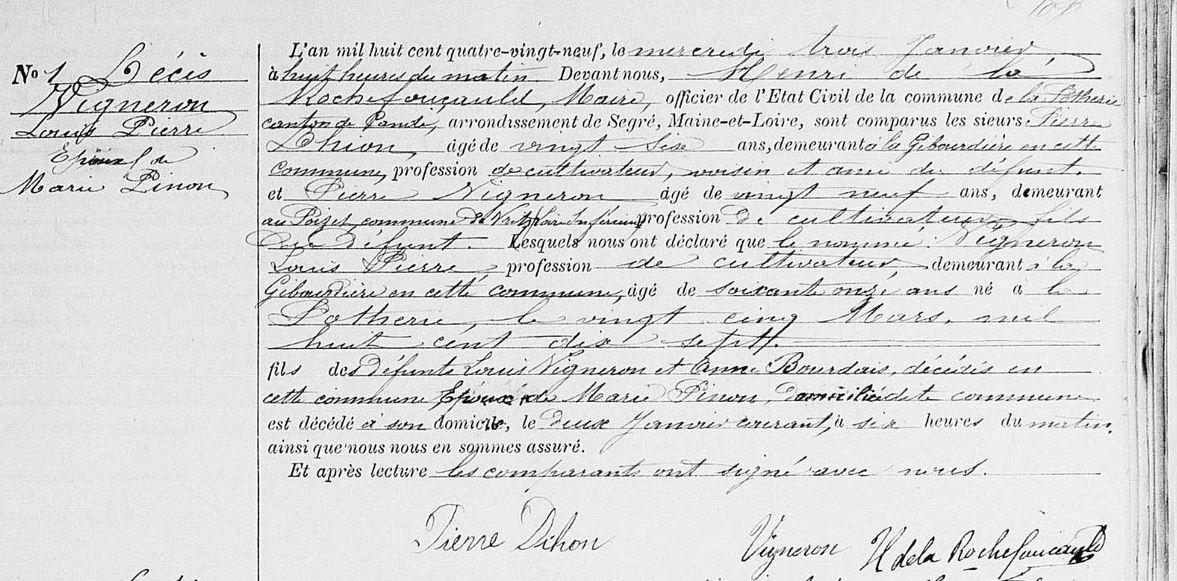 108
L'an mil huit cent quatre-vingt-neuf, le mercredi trois Janvier
à huit heures du matin Devant nous, Henri de la
Rochefoucauld, Maire, officier de l'Etat Civil de la commune de la Potherie
canton de Candé, arrondissement de Segré, Maine-et-Loire, sont comparus les sieurs Pierre
Dihon, âgé de vingt six ans, demeurant à la Gibourdière en cette
commune, profession de cultivateur, voisin et ami du défunt.
et Pierre Vigneron âgé de vingt neuf ans, demeurant
au Poizet, commune de Vritz, Loire Inférieure, profession de cultivateur, fils
du défunt. Lesquels nous ont déclaré que le nommé Vigneron
Louis Pierre, profession de cultivateur, demeurant à la
Gibourdière en cette commune, âgé de soixante onze ans né à la
Potherie, le vingt cinq Mars, mil
huit cent dix sept.
fils des défunts Louis Vigneron et Anne Bourdais, décédés en
cette commune Epoux de Marie Pinon, domiciliée dite commune
est décédé à son domicile, le deux Janvier courant, à six heures du matin,
ainsi que nous nous en sommes assuré.
Et après lecture les comparants ont signé avec nous.
Pierre Dihon Vigneron H de la Rochefoucauld
No 1 Décès
Vigneron
Louis Pierre
Epoux de
Marie Pinon